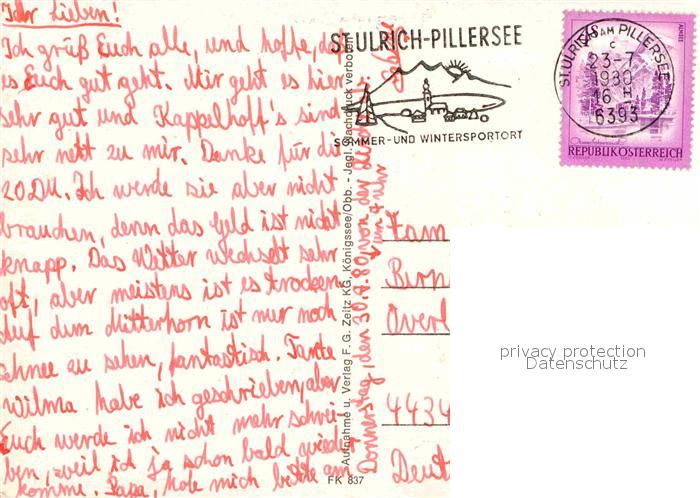 Ihr Lieben!
Ich grüß Euch alle, und hoffe, daß
es Euch gut geht. Mir geht es hier
sehr gut und Kappelhoff's sind
sehr nett zu mir. Danke für die
20DM. Ich werde sie aber nicht
brauchen, denn das Geld ist nicht
knapp. Das Wetter wechselt sehr
oft, aber meistens ist es trocken
Auf dem Mitterhorn ist nur noch
Schnee zu sehen, fantastisch. Tante
Wilma habe ich geschrieben, aber
Euch werde ich nicht mehr schrei-
ben, weil ich ja schon bald wieder
komme. Papa, hole mich bitte am
Donnerstag, den 30.7.80 von der
um 7 Uhr
Aufnahme u. Verlag F. G. Zeitz KG, Königssee/Obb. - Jegl. Nachdruck verboten
FK 837
ST.ULRICH-PILLERSEE
SOMMER-UND WINTERSPORTORT
ST.ULRICH AM PILLERSEE
c
23-7
1980
16 H
6393
REPUBLIK ÖSTERREICH
Fam
Overl
4434
Deut
privacy protection
Datenschutz